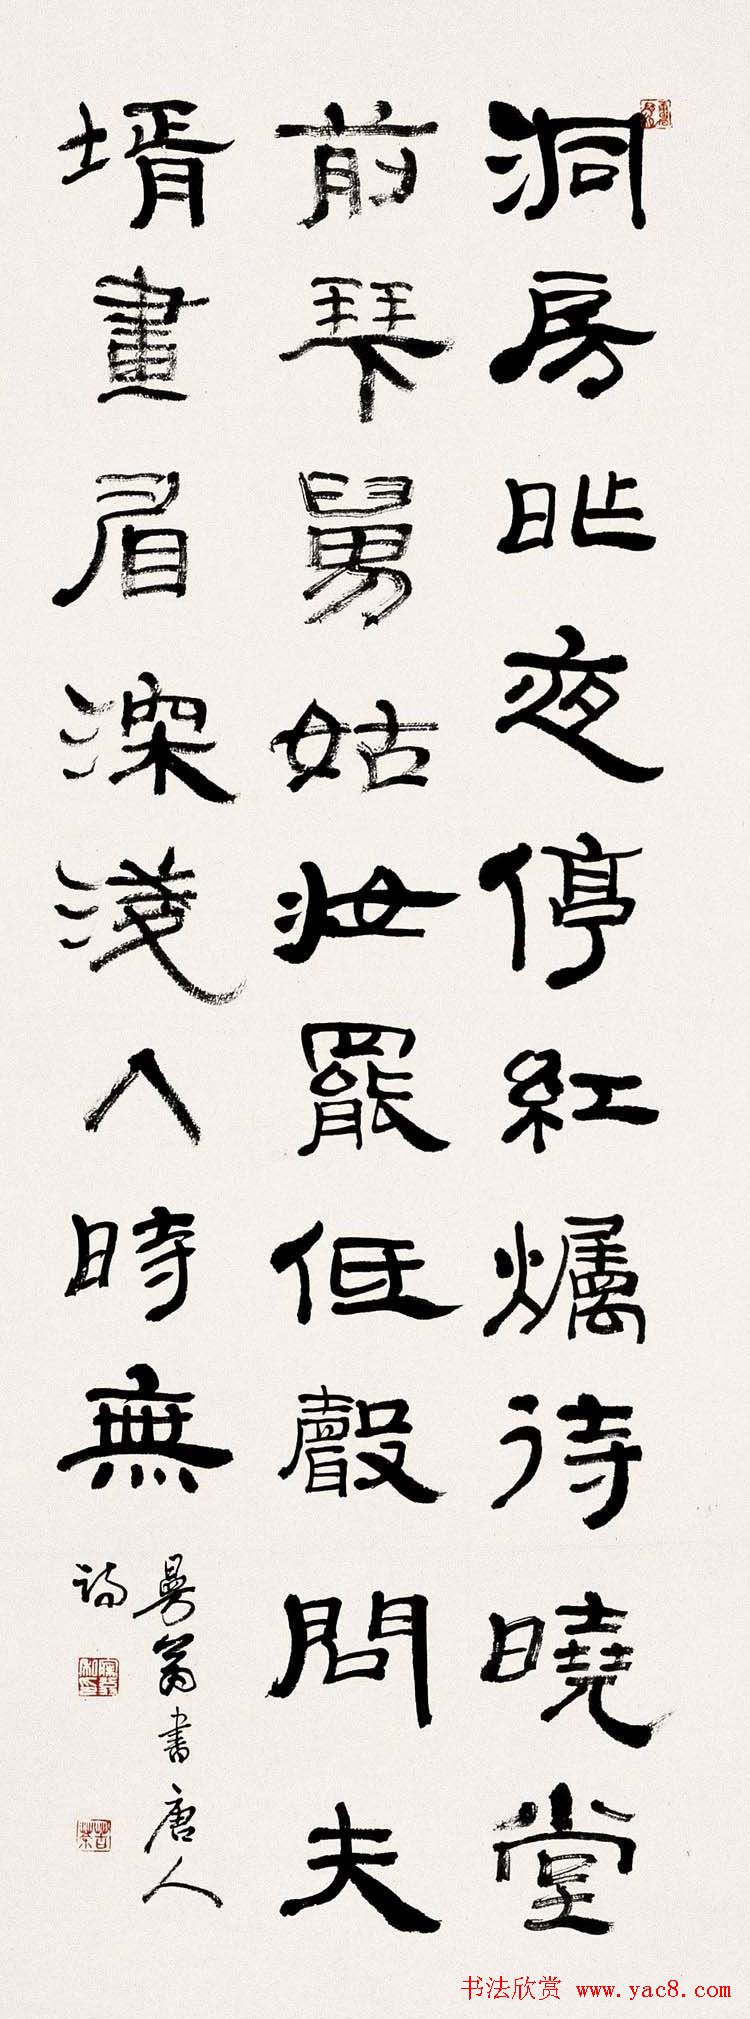 洞房昨夜停紅爥待曉堂
前拜舅姑妝罷低聲問夫
壻畫眉深淺入時無
曼翁書唐人
詩
书法欣赏 www.yac8.com